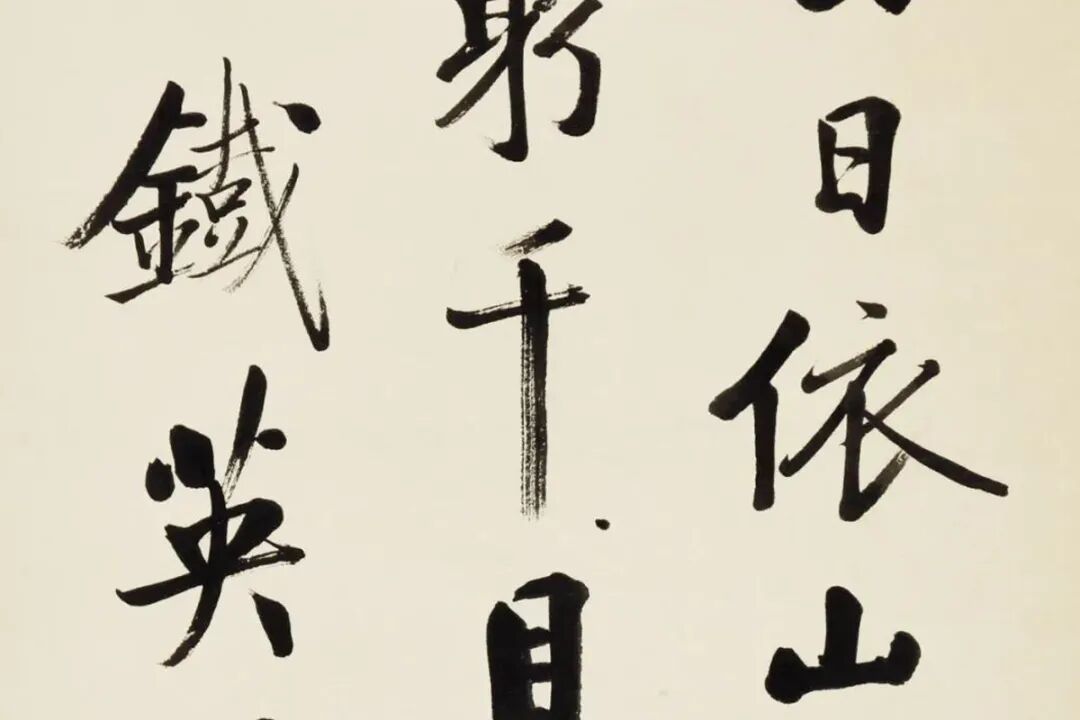 日依山
窮千目
鐵英